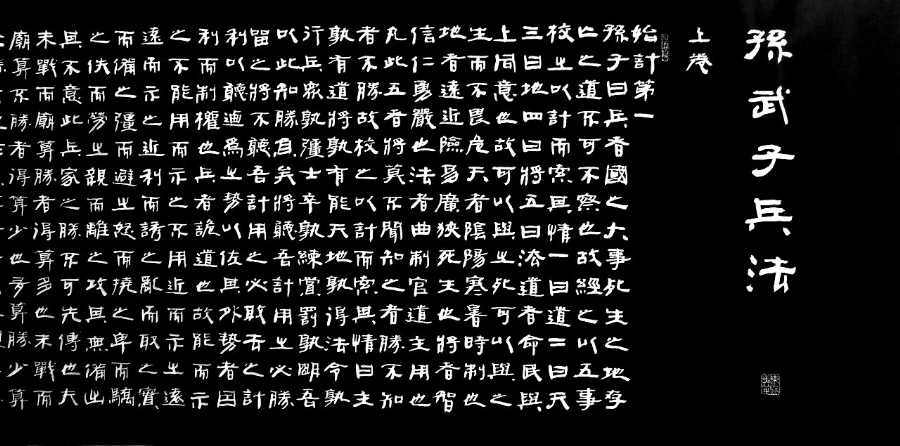 孫武子兵法
上卷
始計第一
孫子曰兵者國之大事死生之地存
亡之道不可不察也故經之以五事
校之以計而索其情一曰道二曰天
三曰地四曰將五曰法道者命民與
上同意也故可以與之死可以與之
生而不畏危天者陰陽寒暑時制也
地者遠近險易廣狹死生也將者智
信仁勇嚴也法者曲制官道主用也
凡此五者將莫不聞知之者勝不知
者不勝故校之以計而索其情曰主
孰有道將孰有能天地孰得法令孰
行兵眾孰彊士卒孰練賞罰孰明吾
以此知勝負矣將聽吾計用之必勝
留之將不聽吾計用之必敗去之計
利以聽迺為之勢以佐其外勢者因
利而制權也兵者詭道也故能而示
之不能用而示之不用近而示之遠
遠而示之近利而誘之亂而取之實
而備之彊而避之怒而撓之卑而驕
之佚而勞之親而離之攻其無備出
其不意此兵家之勝不可先傳也夫
未戰而廟算勝者得算多也未戰而
廟算不勝者得算少也多算勝少算